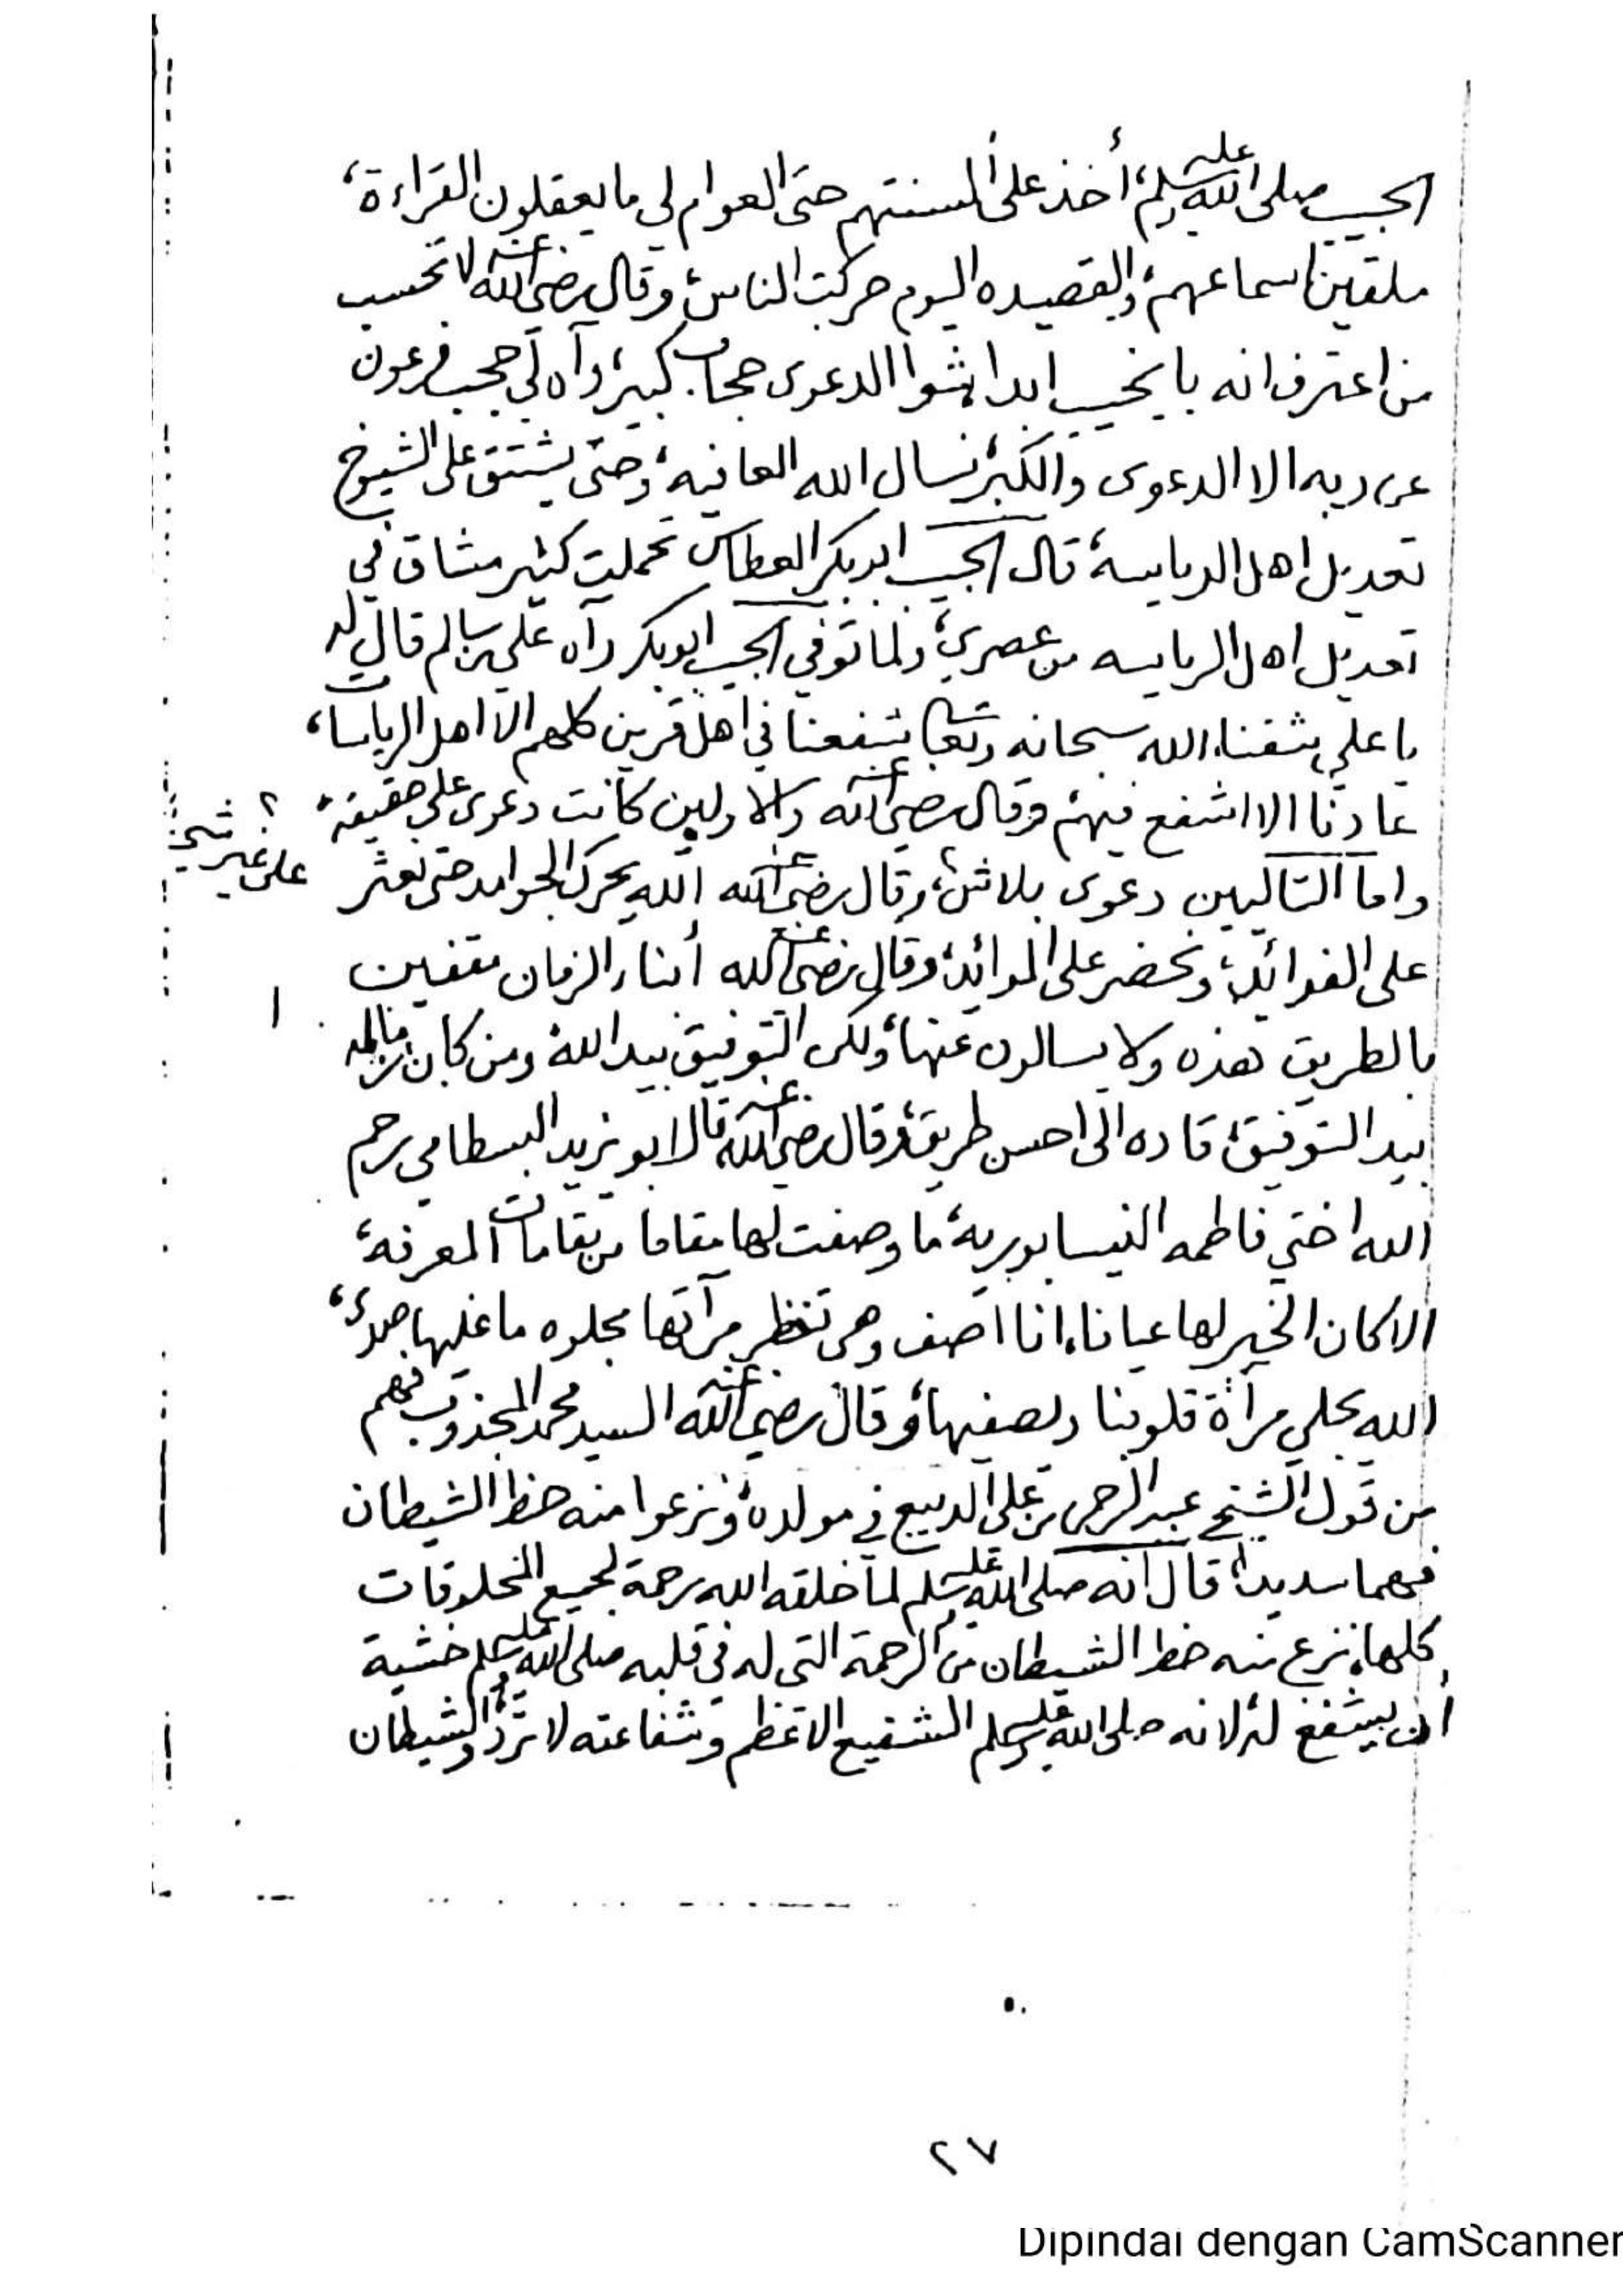 الحبيب صلى الله عليه وسلم، أخذ على ألسنتهم حتى العوام لي ما يعقلون القراءة،
ملقين اسماعهم، والقصيده اليوم حركت الناس، وقال رضي الله عنه لا تحسب
من اعترف انه با يخيب ابدا، شوا الدعوى حجاب كبير، وآه لي حجب فرعون
عن ربه الا الدعوى والكبر، نسال الله العافيه، وحتى يشتق على الشيوخ
تعديل اهل الرياسة، قال الحبيب ابوبكر العطاس تحملت كثير مشاق في
تعديل اهل الرياسه من عصري، ولما توفي الحبيب ابوبكر رآه علي بن سالم قال له
يا علي شفنا، الله سبحانه وتعالى شفعنا في اهل قرين كلهم الا اهل الرياسات،
عادنا الا اشفع فيهم، وقال رضي الله عنه والاولين كانت دعوى على حقيقة،
واما التاليين دعوى بلا شئ، وقال رضي الله عنه الله يحرك الجوامد حتى نعثر
على غير شيخ
على الفوائد، ونحضر على الموائد، وقال رضي الله عنه أبناء الزمان مقفين
بالطريق هذه ولا يسالون عنها، ولكن التوفيق بيد الله، ومن كان زمامه
بيد التوفيق، قاده الى احسن طريق، وقال رضي الله عنه قال ابو يزيد البسطامي رحم
الله اختي فاطمه النيسابورية، ما وصفت لها مقاما من مقامات المعرفة،
الا كان الخبر لها عيانا، انا اصف وهي تنظر مرآتها مجلوه ما عليها صدئ،
الله يجلي مرآة قلوبنا ويصفيها، وقال رضي الله عنه السيد محمد المجذوب فهم
من قول الشيخ عبد الرحمن بن علي الديبع في مولده، ونزعوا منه حظ الشيطان
فهما سديدا، قال انه صلى الله عليه وسلم لما خلقه الله رحمة لجميع المخلوقات
كلها، نزع منه حظ الشيطان من الرحمة التى له في قلبه صلى الله عليه وسلم خشية
أن يشفع له، لانه صلى الله عليه وسلم الشفيع الاعظم وشفاعته لا ترد، والشيطان
٢٧
Dipindai dengan CamScanner